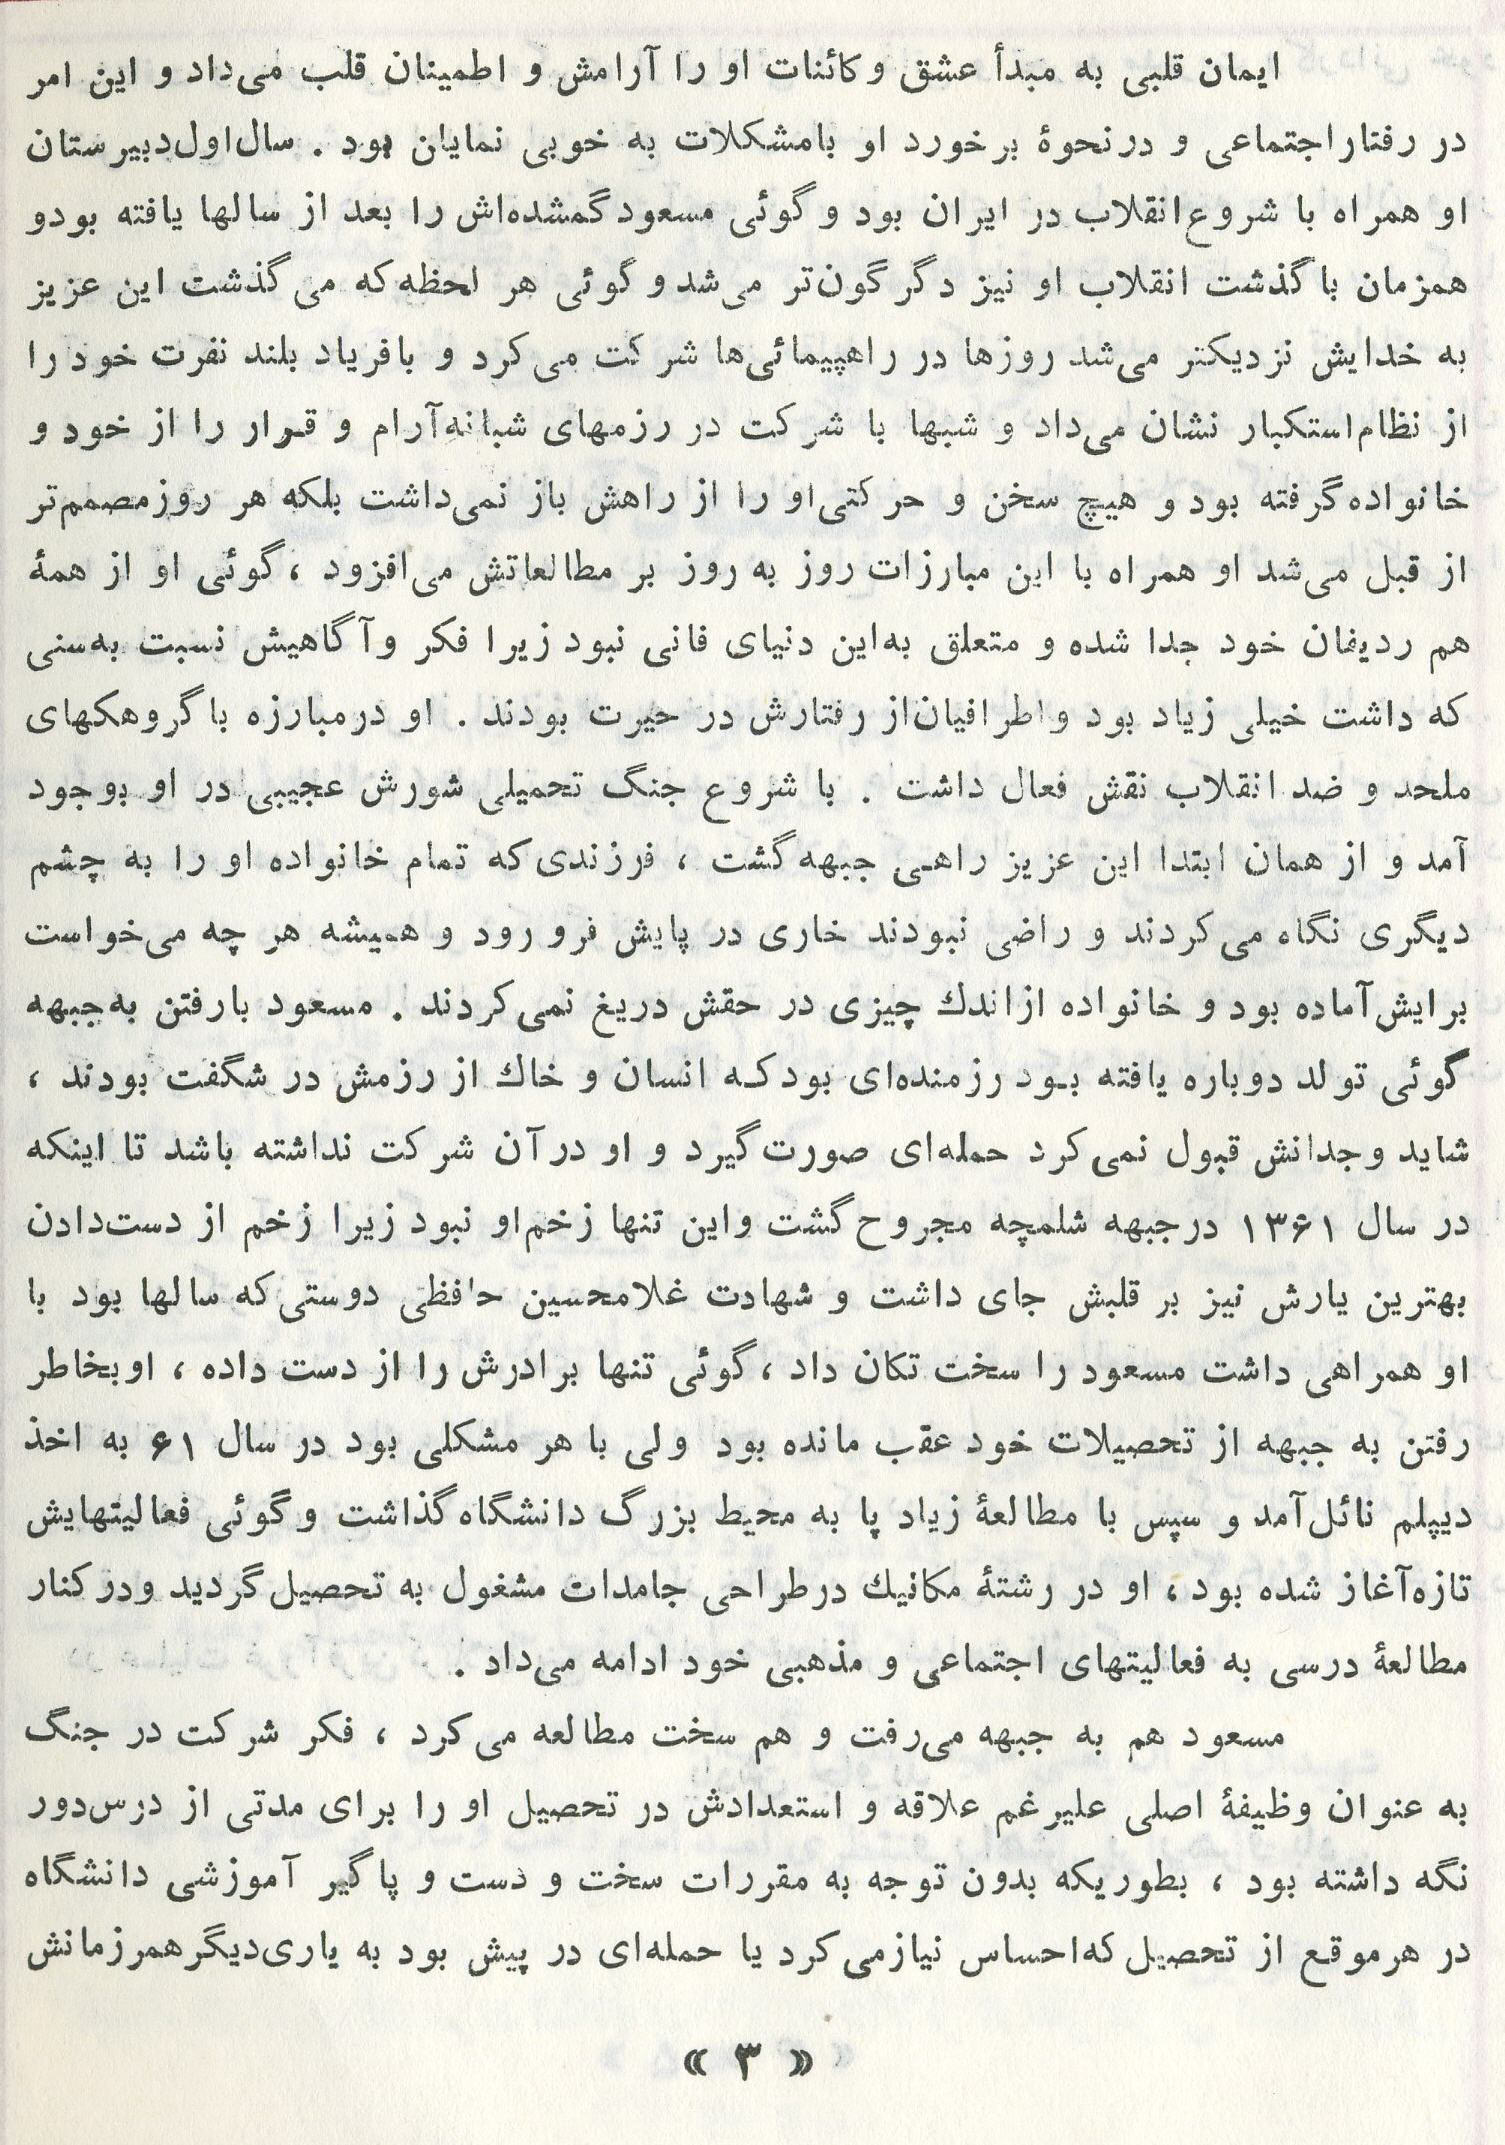 ایمان قلبی به مبدأ عشق و کائنات او را آرامش و اطمینان قلب می‌داد و این امر
در رفتار اجتماعی و در نحوۀ برخورد او با مشکلات به خوبی نمایان بود . سال اول دبیرستان
او همراه با شروع انقلاب در ایران بود و گوئی مسعود گمشده‌اش را بعد از سالها یافته بود و
همزمان با گذشت انقلاب او نیز دگرگون‌تر می‌شد و گوئی هر لحظه که می‌گذشت این عزیز
به خدایش نزدیکتر می‌شد روزها در راهپیمائی‌ها شرکت می‌کرد و با فریاد بلند نفرت خود را
از نظام استکبار نشان می‌داد و شبها با شرکت در رزمهای شبانه آرام و قرار را از خود و
خانواده گرفته بود و هیچ سخن و حرکتی او را از راهش باز نمی‌داشت بلکه هر روز مصمم‌تر
از قبل می‌شد او همراه با این مبارزات روز به روز بر مطالعاتش می‌افزود ، گوئی او از همۀ
هم ردیفان خود جدا شده و متعلق به این دنیای فانی نبود زیرا فکر و آگاهیش نسبت به سنی
که داشت خیلی زیاد بود و اطرافیان از رفتارش در حیرت بودند . او در مبارزه با گروهکهای
ملحد و ضد انقلاب نقش فعال داشت . با شروع جنگ تحمیلی شورش عجیبی در او بوجود
آمد و از همان ابتدا این عزیز راهی جبهه گشت ، فرزندی که تمام خانواده او را به چشم
دیگری نگاه می‌کردند و راضی نبودند خاری در پایش فرو رود و همیشه هر چه می‌خواست
برایش آماده بود و خانواده از اندك چیزی در حقش دریغ نمی‌کردند . مسعود با رفتن به جبهه
گوئی تولد دوباره یافته بود رزمنده‌ای بود که انسان و خاك از رزمش در شگفت بودند ،
شاید وجدانش قبول نمی‌کرد حمله‌ای صورت گیرد و او در آن شرکت نداشته باشد تا اینکه
در سال ۱۳۶۱ در جبهه شلمچه مجروح گشت و این تنها زخم او نبود زیرا زخم از دست دادن
بهترین یارش نیز بر قلبش جای داشت و شهادت غلامحسین حافظی دوستی که سالها بود با
او همراهی داشت مسعود را سخت تکان داد ، گوئی تنها برادرش را از دست داده ، او بخاطر
رفتن به جبهه از تحصیلات خود عقب مانده بود ولی با هر مشکلی بود در سال ۶۱ به اخذ
دیپلم نائل آمد و سپس با مطالعۀ زیاد پا به محیط بزرگ دانشگاه گذاشت و گوئی فعالیتهایش
تازه آغاز شده بود ، او در رشتۀ مکانیك در طراحی جامدات مشغول به تحصیل گردید و در کنار
مطالعۀ درسی به فعالیتهای اجتماعی و مذهبی خود ادامه می‌داد .
مسعود هم به جبهه می‌رفت و هم سخت مطالعه می‌کرد ، فکر شرکت در جنگ
به عنوان وظیفۀ اصلی علیرغم علاقه و استعدادش در تحصیل او را برای مدتی از درس دور
نگه داشته بود ، بطوریکه بدون توجه به مقررات سخت و دست و پا گیر آموزشی دانشگاه
در هر موقع از تحصیل که احساس نیاز می‌کرد یا حمله‌ای در پیش بود به یاری دیگر همرزمانش
« ۳ »